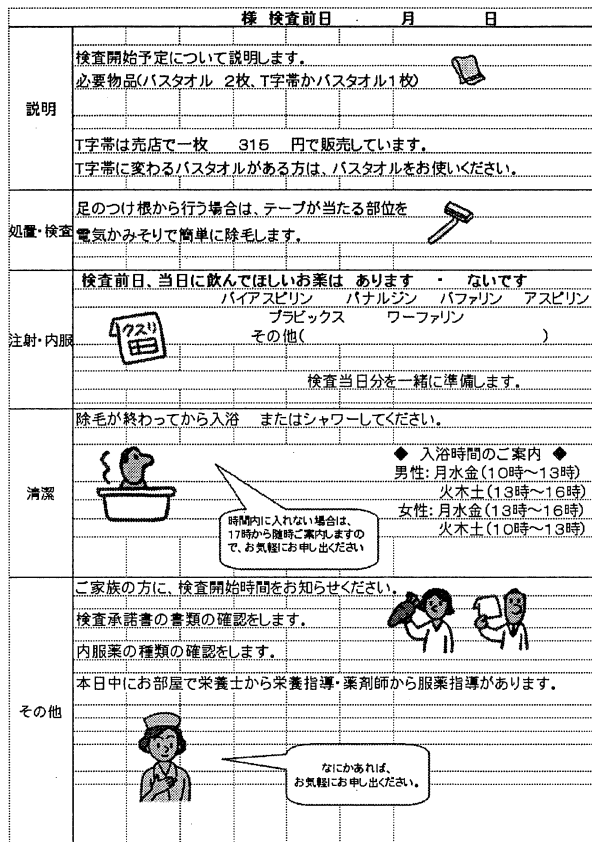 様 検査前日 月 日
説明
検査開始予定について説明します。
必要物品(バスタオル 2枚、T字帯かバスタオル1枚)
T字帯は売店で一枚 315 円で販売しています。
T字帯に変わるバスタオルがある方は、バスタオルをお使いください。
処置・検査
足のつけ根から行う場合は、テープが当たる部位を
電気かみそりで簡単に除毛します。
注射・内服
検査前日、当日に飲んでほしいお薬は あります ・ ないです
バイアスピリン パナルジン バファリン アスピリン
プラビックス ワーファリン
クスリ
その他( )
検査当日分を一緒に準備します。
清潔
除毛が終わってから入浴 またはシャワーしてください。
◆ 入浴時間のご案内 ◆
男性:月水金(10時~13時)
火木土(13時~16時)
女性:月水金(13時~16時)
火木土(10時~13時)
時間内に入れない場合は、
17時から随時ご案内しますの
で、お気軽にお申し出ください
その他
ご家族の方に、検査開始時間をお知らせください。
検査承諾書の書類の確認をします。
内服薬の種類の確認をします。
本日中にお部屋で栄養士から栄養指導・薬剤師から服薬指導があります。
なにかあれば、
お気軽にお申し出ください。